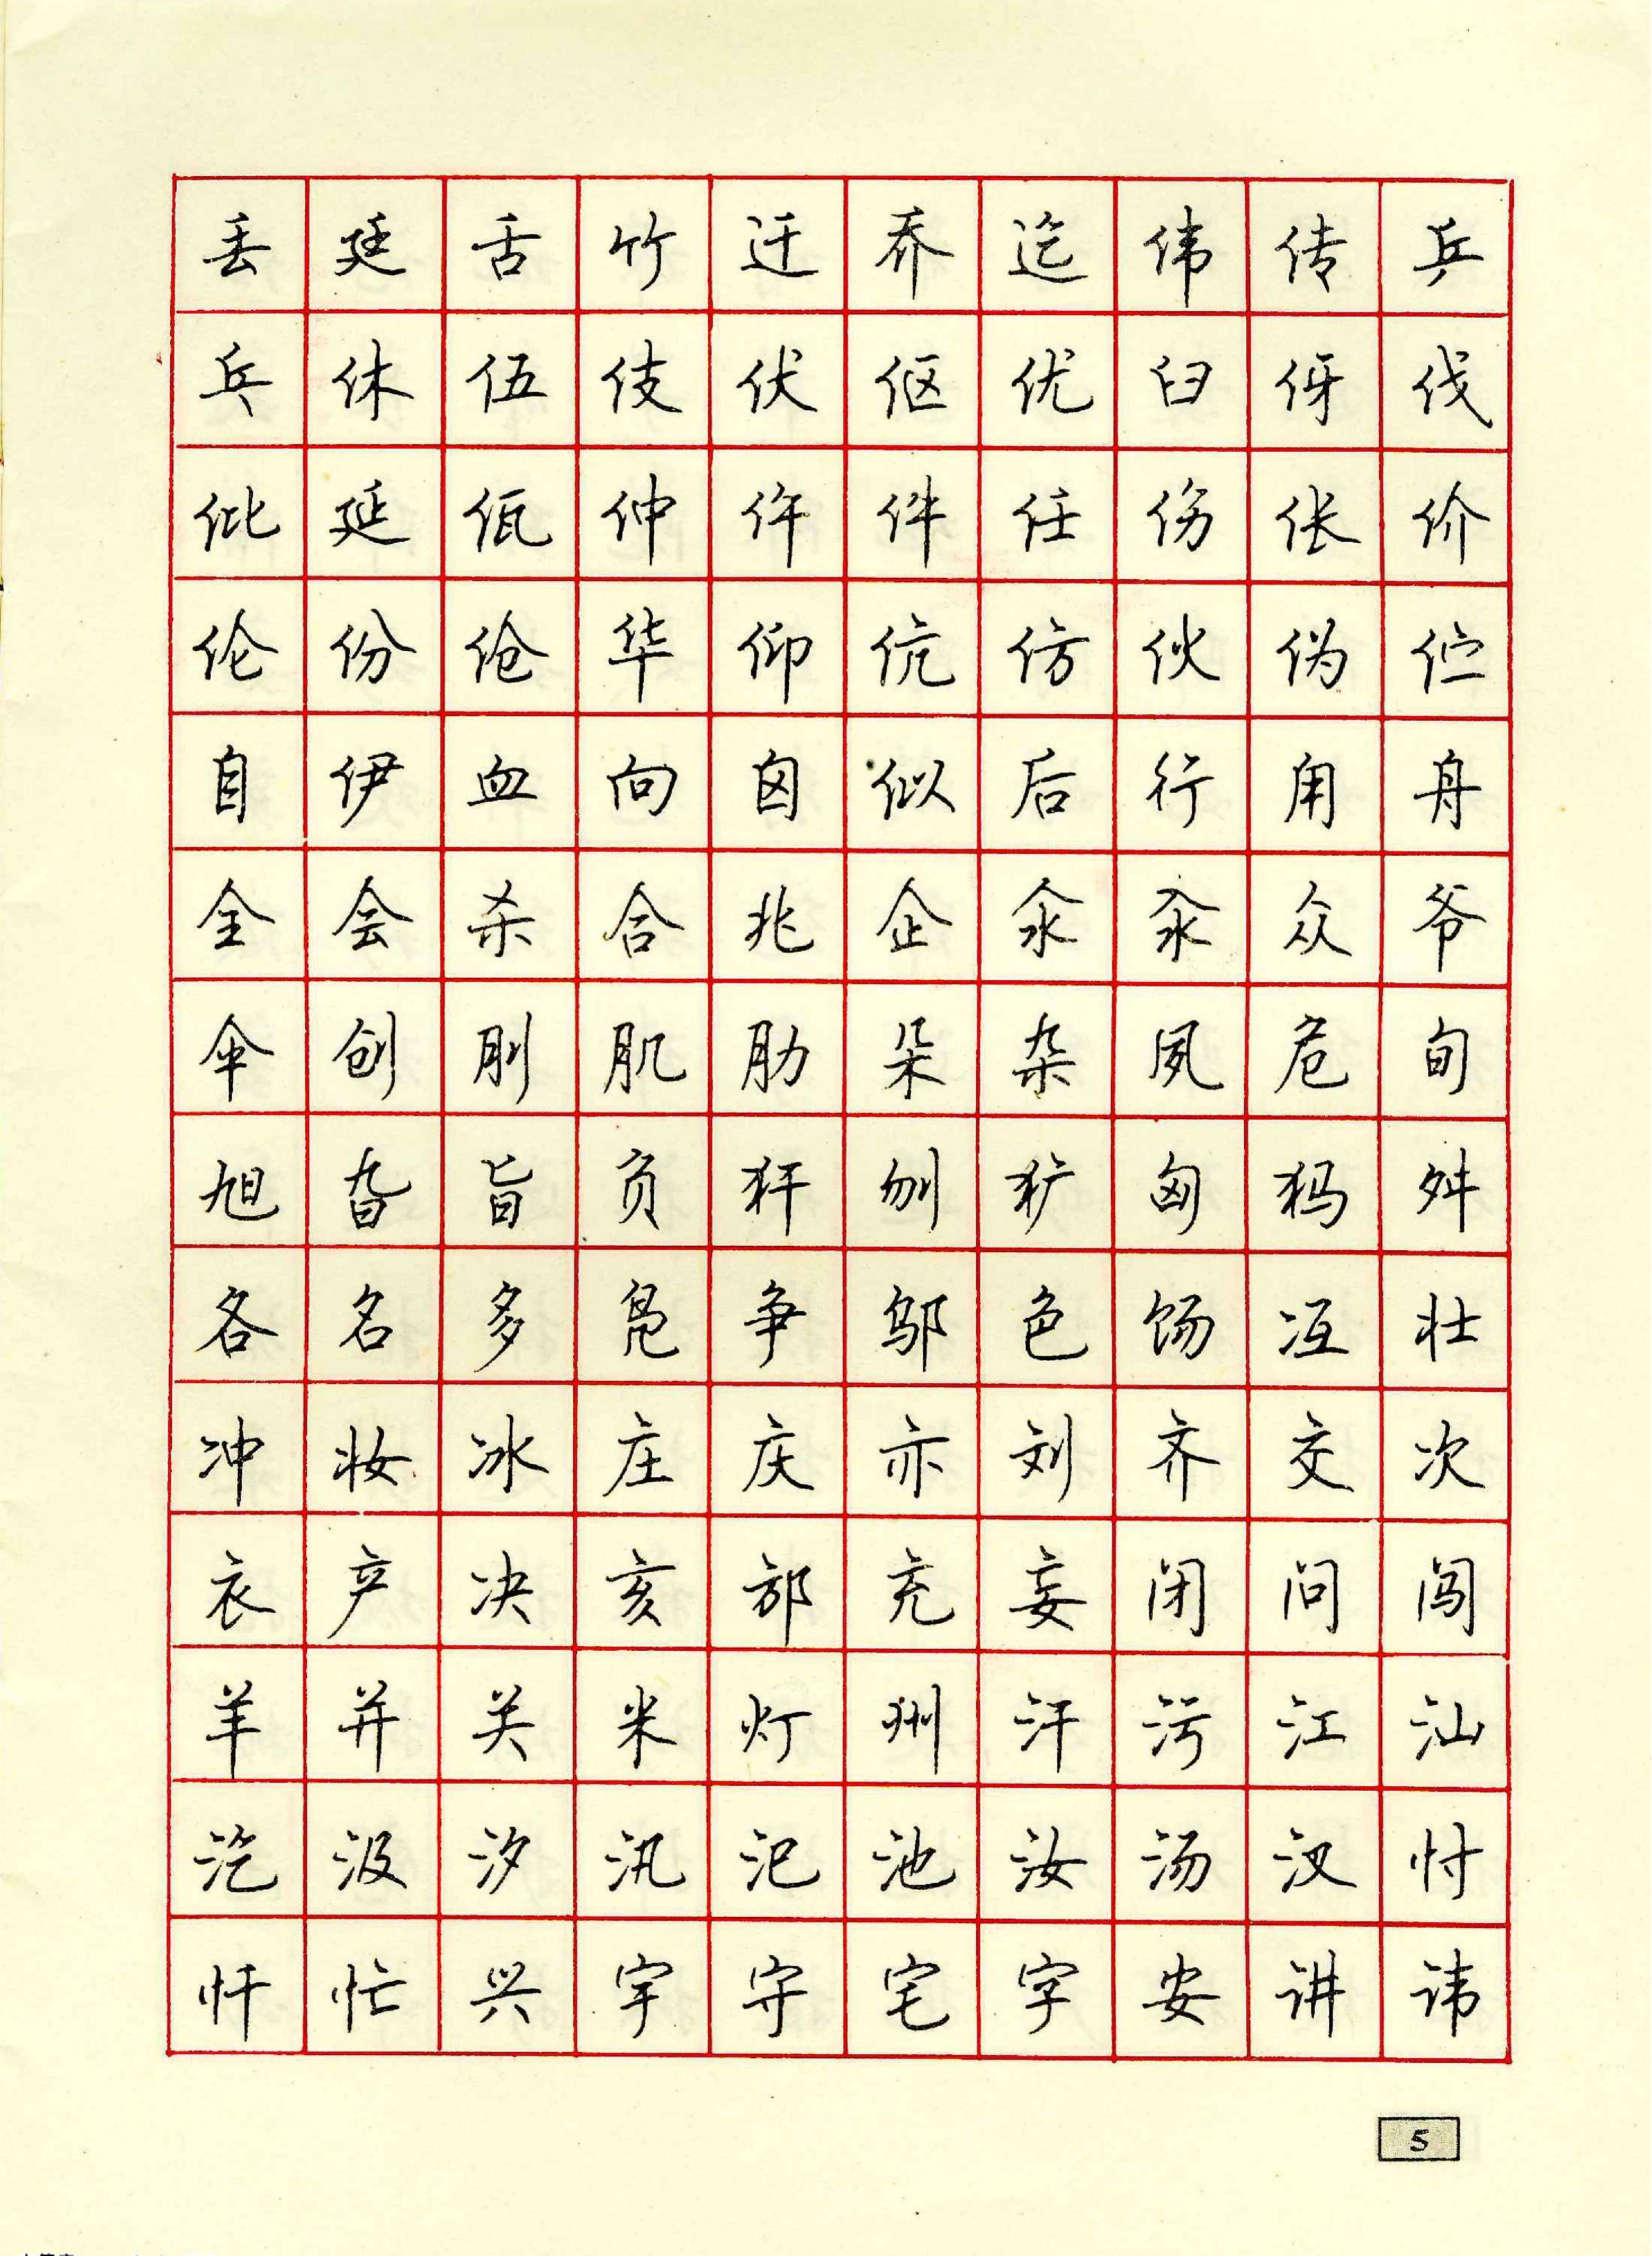 丢 廷 舌 竹 迁 乔 迄 伟 传 乒
乓 休 伍 伎 伏 伛 优 臼 伢 伐
仳 延 佤 仲 仵 件 任 伤 伥 价
伦 份 伧 华 仰 伉 仿 伙 伪 伫
自 伊 血 向 囟 似 后 行 甪 舟
全 会 杀 合 兆 企 汆 氽 众 爷
伞 创 刖 肌 肋 朵 杂 夙 危 旬
旭 旮 旨 负 犴 刎 犷 匈 犸 舛
各 名 多 凫 争 邬 色 饧 冱 壮
冲 妆 冰 庄 庆 亦 刘 齐 交 次
衣 产 决 亥 邡 充 妄 闭 问 闯
羊 并 关 米 灯 州 汗 污 江 汕
汔 汲 汐 汛 汜 池 汝 汤 汊 忖
忏 忙 兴 宇 守 宅 字 安 讲 讳
5